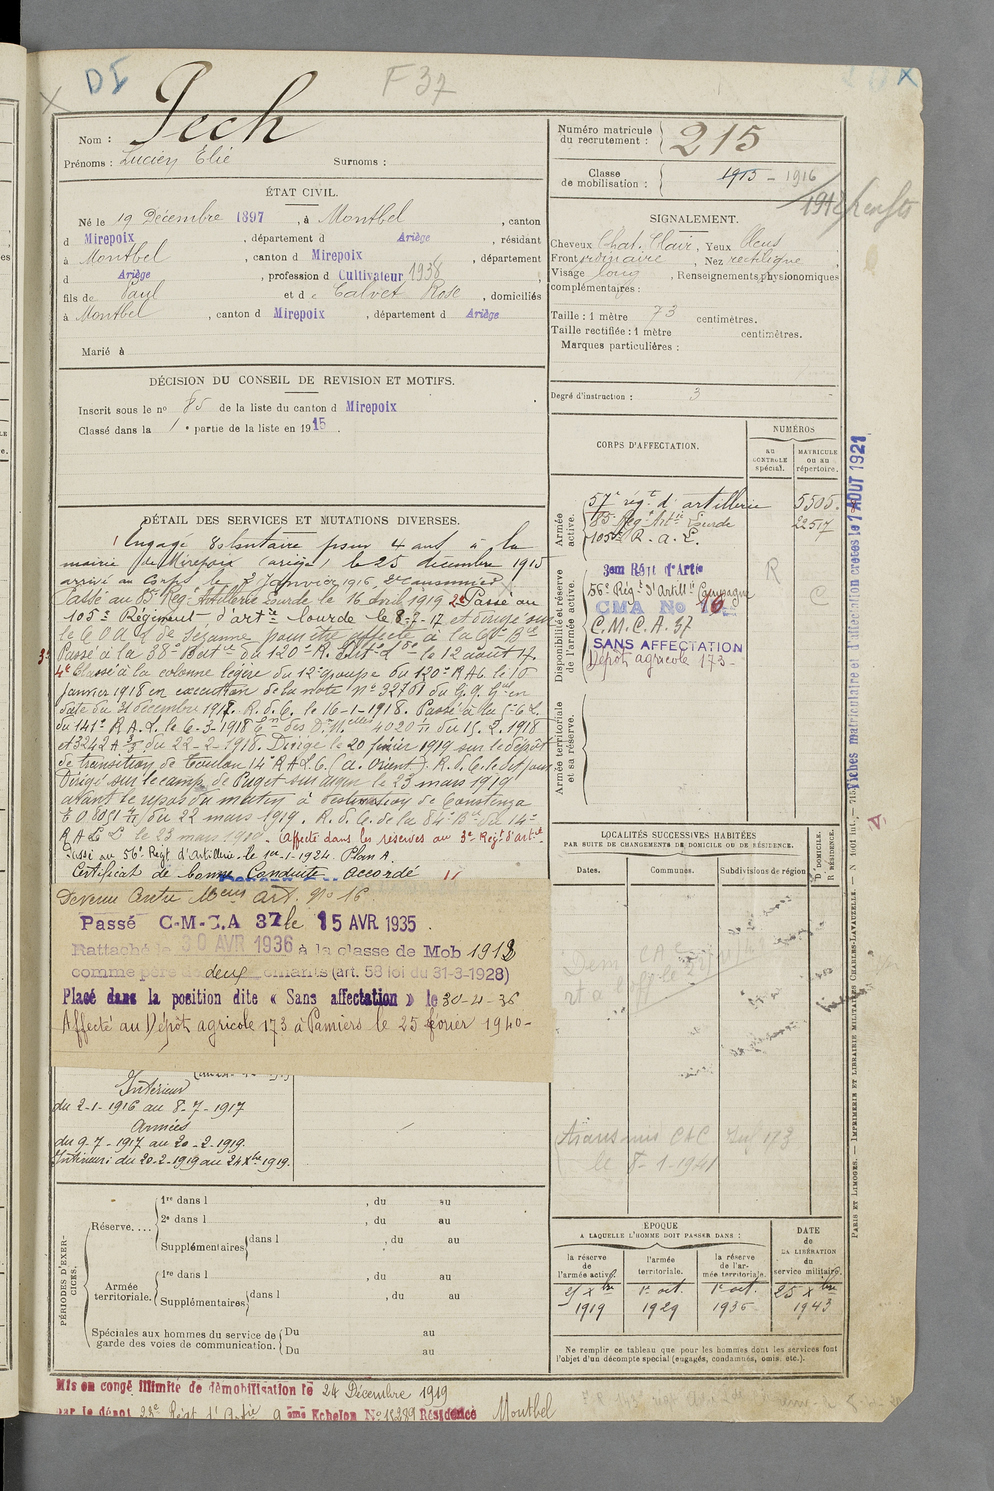 DI
F 37
Nom : Pech
Prénoms : Lucien Elie Surnoms :
ÉTAT CIVIL.
Né le 19 Décembre 1897, à Montbel, canton
d Mirepoix, département d Ariège, résidant
à Montbel, canton d Mirepoix, département
d Ariège, profession d Cultivateur 1938
fils de Paul et d e Calvet Rose, domiciliés
à Montbel, canton d Mirepoix, département d Ariège
Marié à
DÉCISION DU CONSEIL DE REVISION ET MOTIFS.
Inscrit sous le no 85 de la liste du canton d Mirepoix
Classé dans la 1e partie de la liste en 1915.
DÉTAIL DES SERVICES ET MUTATIONS DIVERSES.
Engagé Volontaire pour 4 ans à la
mairie de Mirepoix (ariège) le 25 décembre 1915
arrivé au Corps le 2 Janvier 1916, 2e canonnier
Passé au 85 Reg. Artillerie Lourde le 16 avril 1919 2e Passé au
105e Régiment d'artie lourde le 8-7-17 et
le C.O.A.L de Sézanne pour être affecté à la
3e Passé à la 38e Batie du 120e R. Artie Lde le 12 août 17.
4e Classé à la colonne légère du 12e groupe du 120e RAL le 10
Janvier 1918 en exécution de la note No 32701 du G.Q. Gal en
date du 31 décembre 1917. R.d.C. le 16-1-1918. Passé à la
du 141e R.A.L. le 6-3-1918 des 4020 du 15.2.1918
et 3242 A du 22-2-1918. Dirigé le 20 février 1919 sur le dépôt
de transition de Toulon 14e R.A.L.C. (A. Orient). R.d.C. le dit jour
Dirigé sur le camp de Puget sur argens le 23 mars 1919
avant le repas du matin à destination de Constanza
du 22 mars 1919. R.d.C. de la 84e Bie du 14e
R A L le 23 mars 1919. Affecté dans les réserves au 3e Régt d'artie
Passé au 56e Régt d'Artillerie le 1er-1-1924. Plan A.
Certificat de bonne Conduite accordé
Devenu Centre Mobon Art. No 16
Passé C-M-C.A 37 le 15 AVR 1935.
Rattaché le 30 AVR 1936 à la classe de Mob 1912
comme père de deux enfants (art. 58 loi du 31-3-1928)
Placé dans la position dite « Sans affectation » le 30-4-36
Affecté au Dépôt agricole 173 à Pamiers le 25 février 1940-
Intérieur
du 2-1-1916 au 8-7-1917
Armées
du 9-7-1917 au 20-2-1919.
Intérieur: du 20-2-1919 au 24 Xbre 1919.
PÉRIODES D'EXERCICES.
Réserve....
1re dans l , du au
2e dans l , du au
Supplémentaires dans l , du au
Armée territoriale.
1re dans l , du au
Supplémentaires dans l , du au
Spéciales aux hommes du service de garde des voies de communication.
Du au
Du au
Mis en congé illimité de démobilisation le 24 Décembre 1919
par le dépôt Régt d'Artie 9ème Echelon No 18289 Résidence Montbel
Numéro matricule du recrutement : 215
Classe de mobilisation : 1915 - 1916
1912
SIGNALEMENT.
Cheveux Chat. Clair, Yeux Bleus
Front ordinaire, Nez rectiligne
Visage long, Renseignements physionomiques
complémentaires :
Taille : 1 mètre 73 centimètres.
Taille rectifiée : 1 mètre centimètres.
Marques particulières :
Degré d'instruction : 3
CORPS D'AFFECTATION.
NUMÉROS
AU CONTROLE spécial.
MATRICULE OU AU répertoire.
Armée active.
57e régt d'artillerie 5505.
85e Rég Artie Lourde 22517
105e R.a.L.
Disponibilité et réserve de l'armée active.
3em Régt d'Artie
56e Régt d'Artillie Campagne
CMA No 16
C.M.C.A. 37
SANS AFFECTATION
Dépôt agricole 173-
R
C
Armée territoriale et sa réserve.
LOCALITÉS SUCCESSIVES HABITÉES
PAR SUITE DE CHANGEMENTS DE DOMICILE OU DE RÉSIDENCE.
Dates.
Communes.
Subdivisions de région
D. DOMICILE.
R. RÉSIDENCE.
Transmis CAC Sub 173
le 8-1-1941
ÉPOQUE
A LAQUELLE L'HOMME DOIT PASSER DANS :
la réserve de l'armée active.
l'armée territoriale.
la réserve de l'armée territoriale.
DATE de LA LIBÉRATION du service militaire.
25 Xbre 1919
1er oct. 1929
1er oct. 1935
25 Xbre 1943
Ne remplir ce tableau que pour les hommes dont les services font
l'objet d'un décompte spécial (engagés, condamnés, omis, etc.).
Fiches matriculaire et d'affectation créées le 1 AOUT 1921
PARIS ET LIMOGES. — IMPRIMERIE ET LIBRAIRIE MILITAIRES CHARLES-LAVAUZELLE.